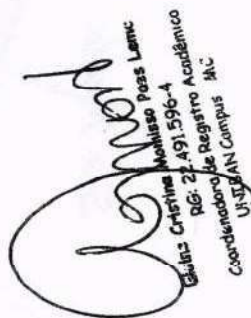 Cristina Momisso Pazs Leme
RG: 22.491.596-4
Coordenadora de Registro Acadêmico
UNIBAN Campus MC